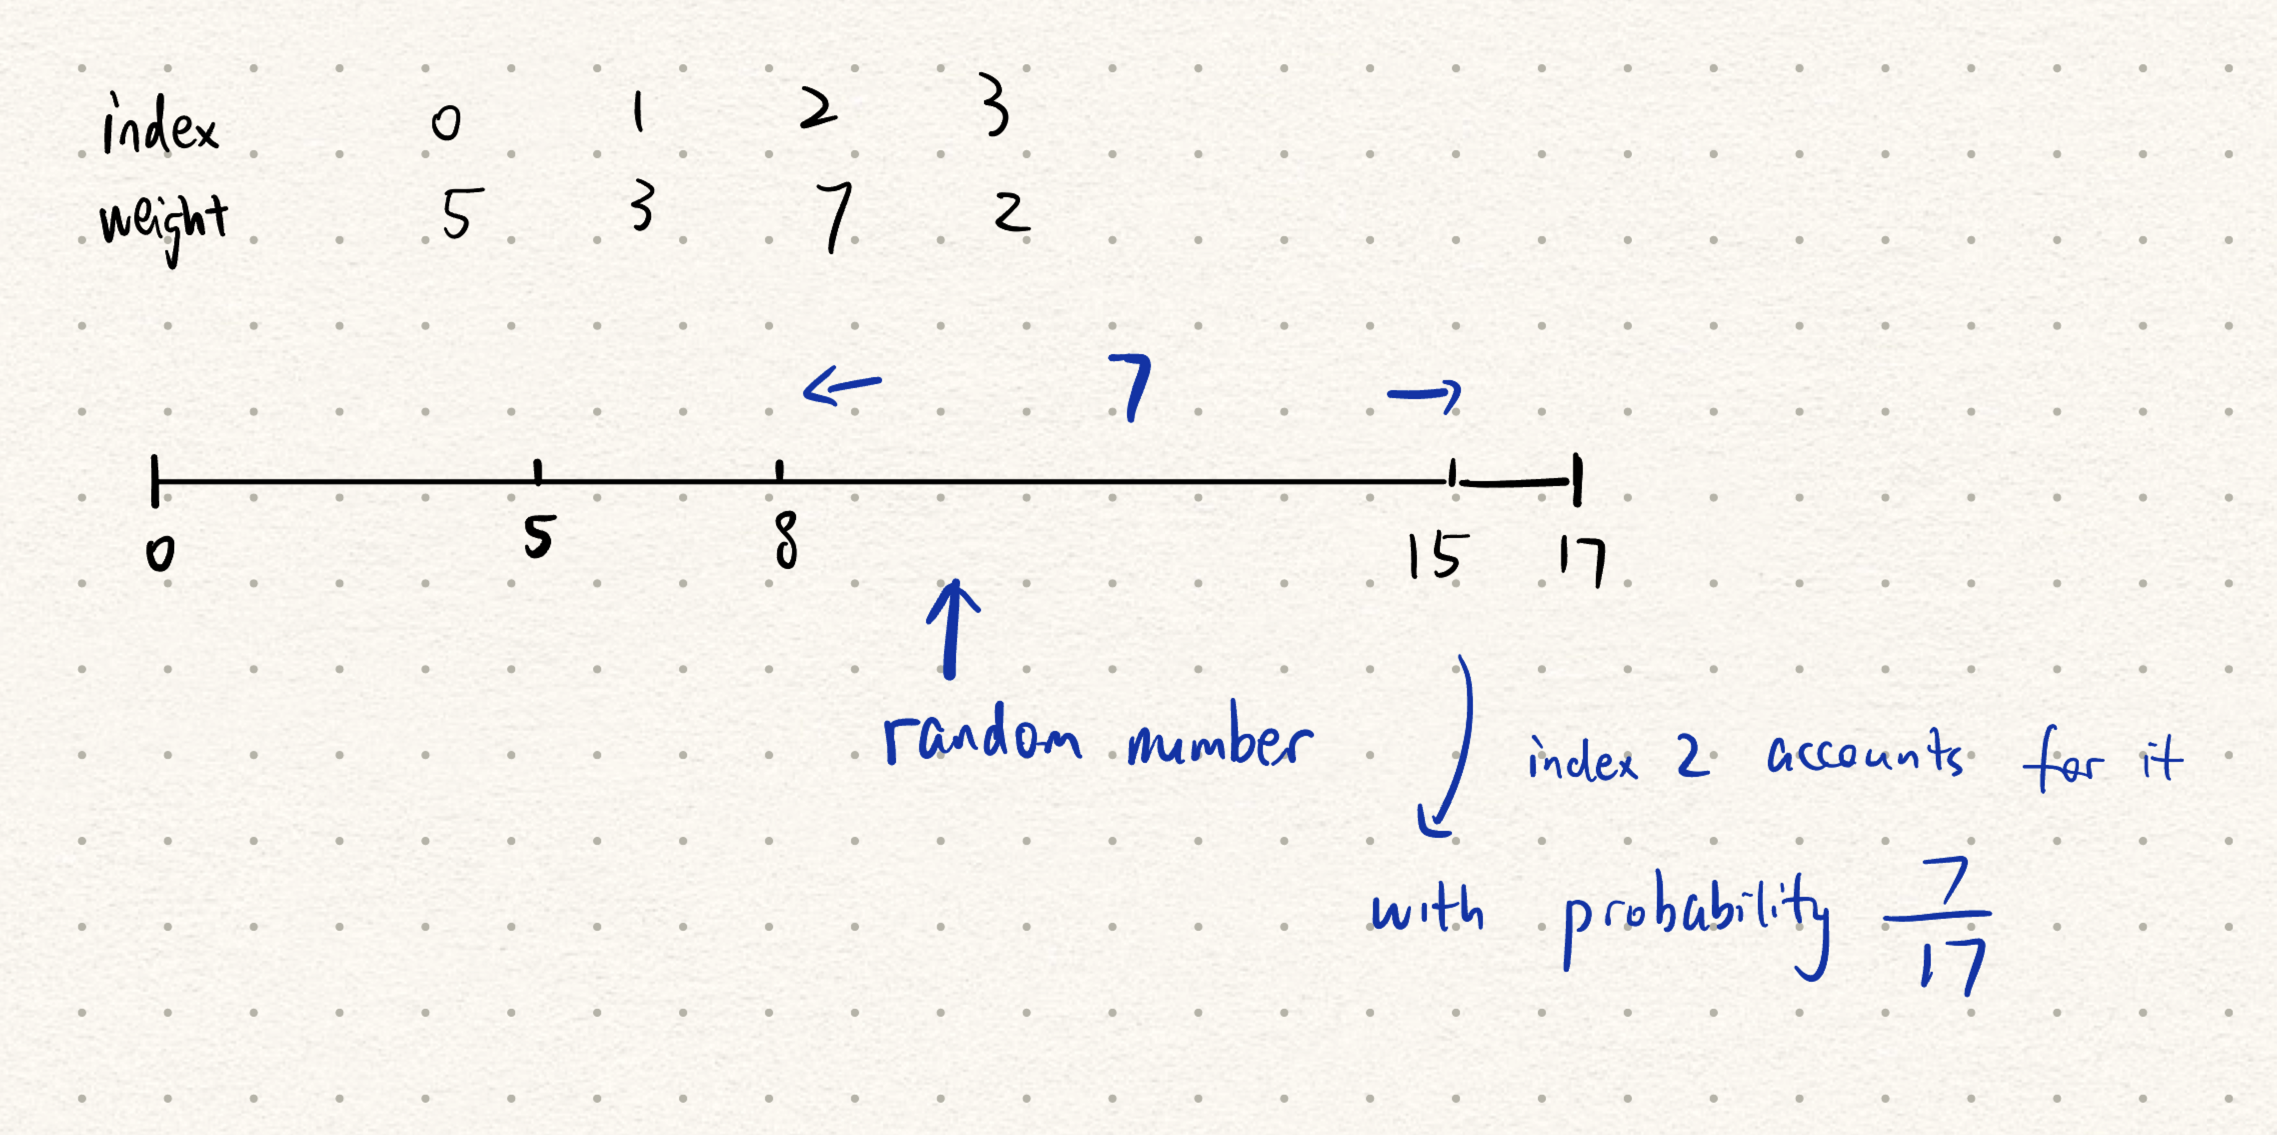 index 0 1 2 3
weight 5 3 7 2
← 7 →
0 5 8 15 17
random number
index 2 accounts for it
with probability 7/17